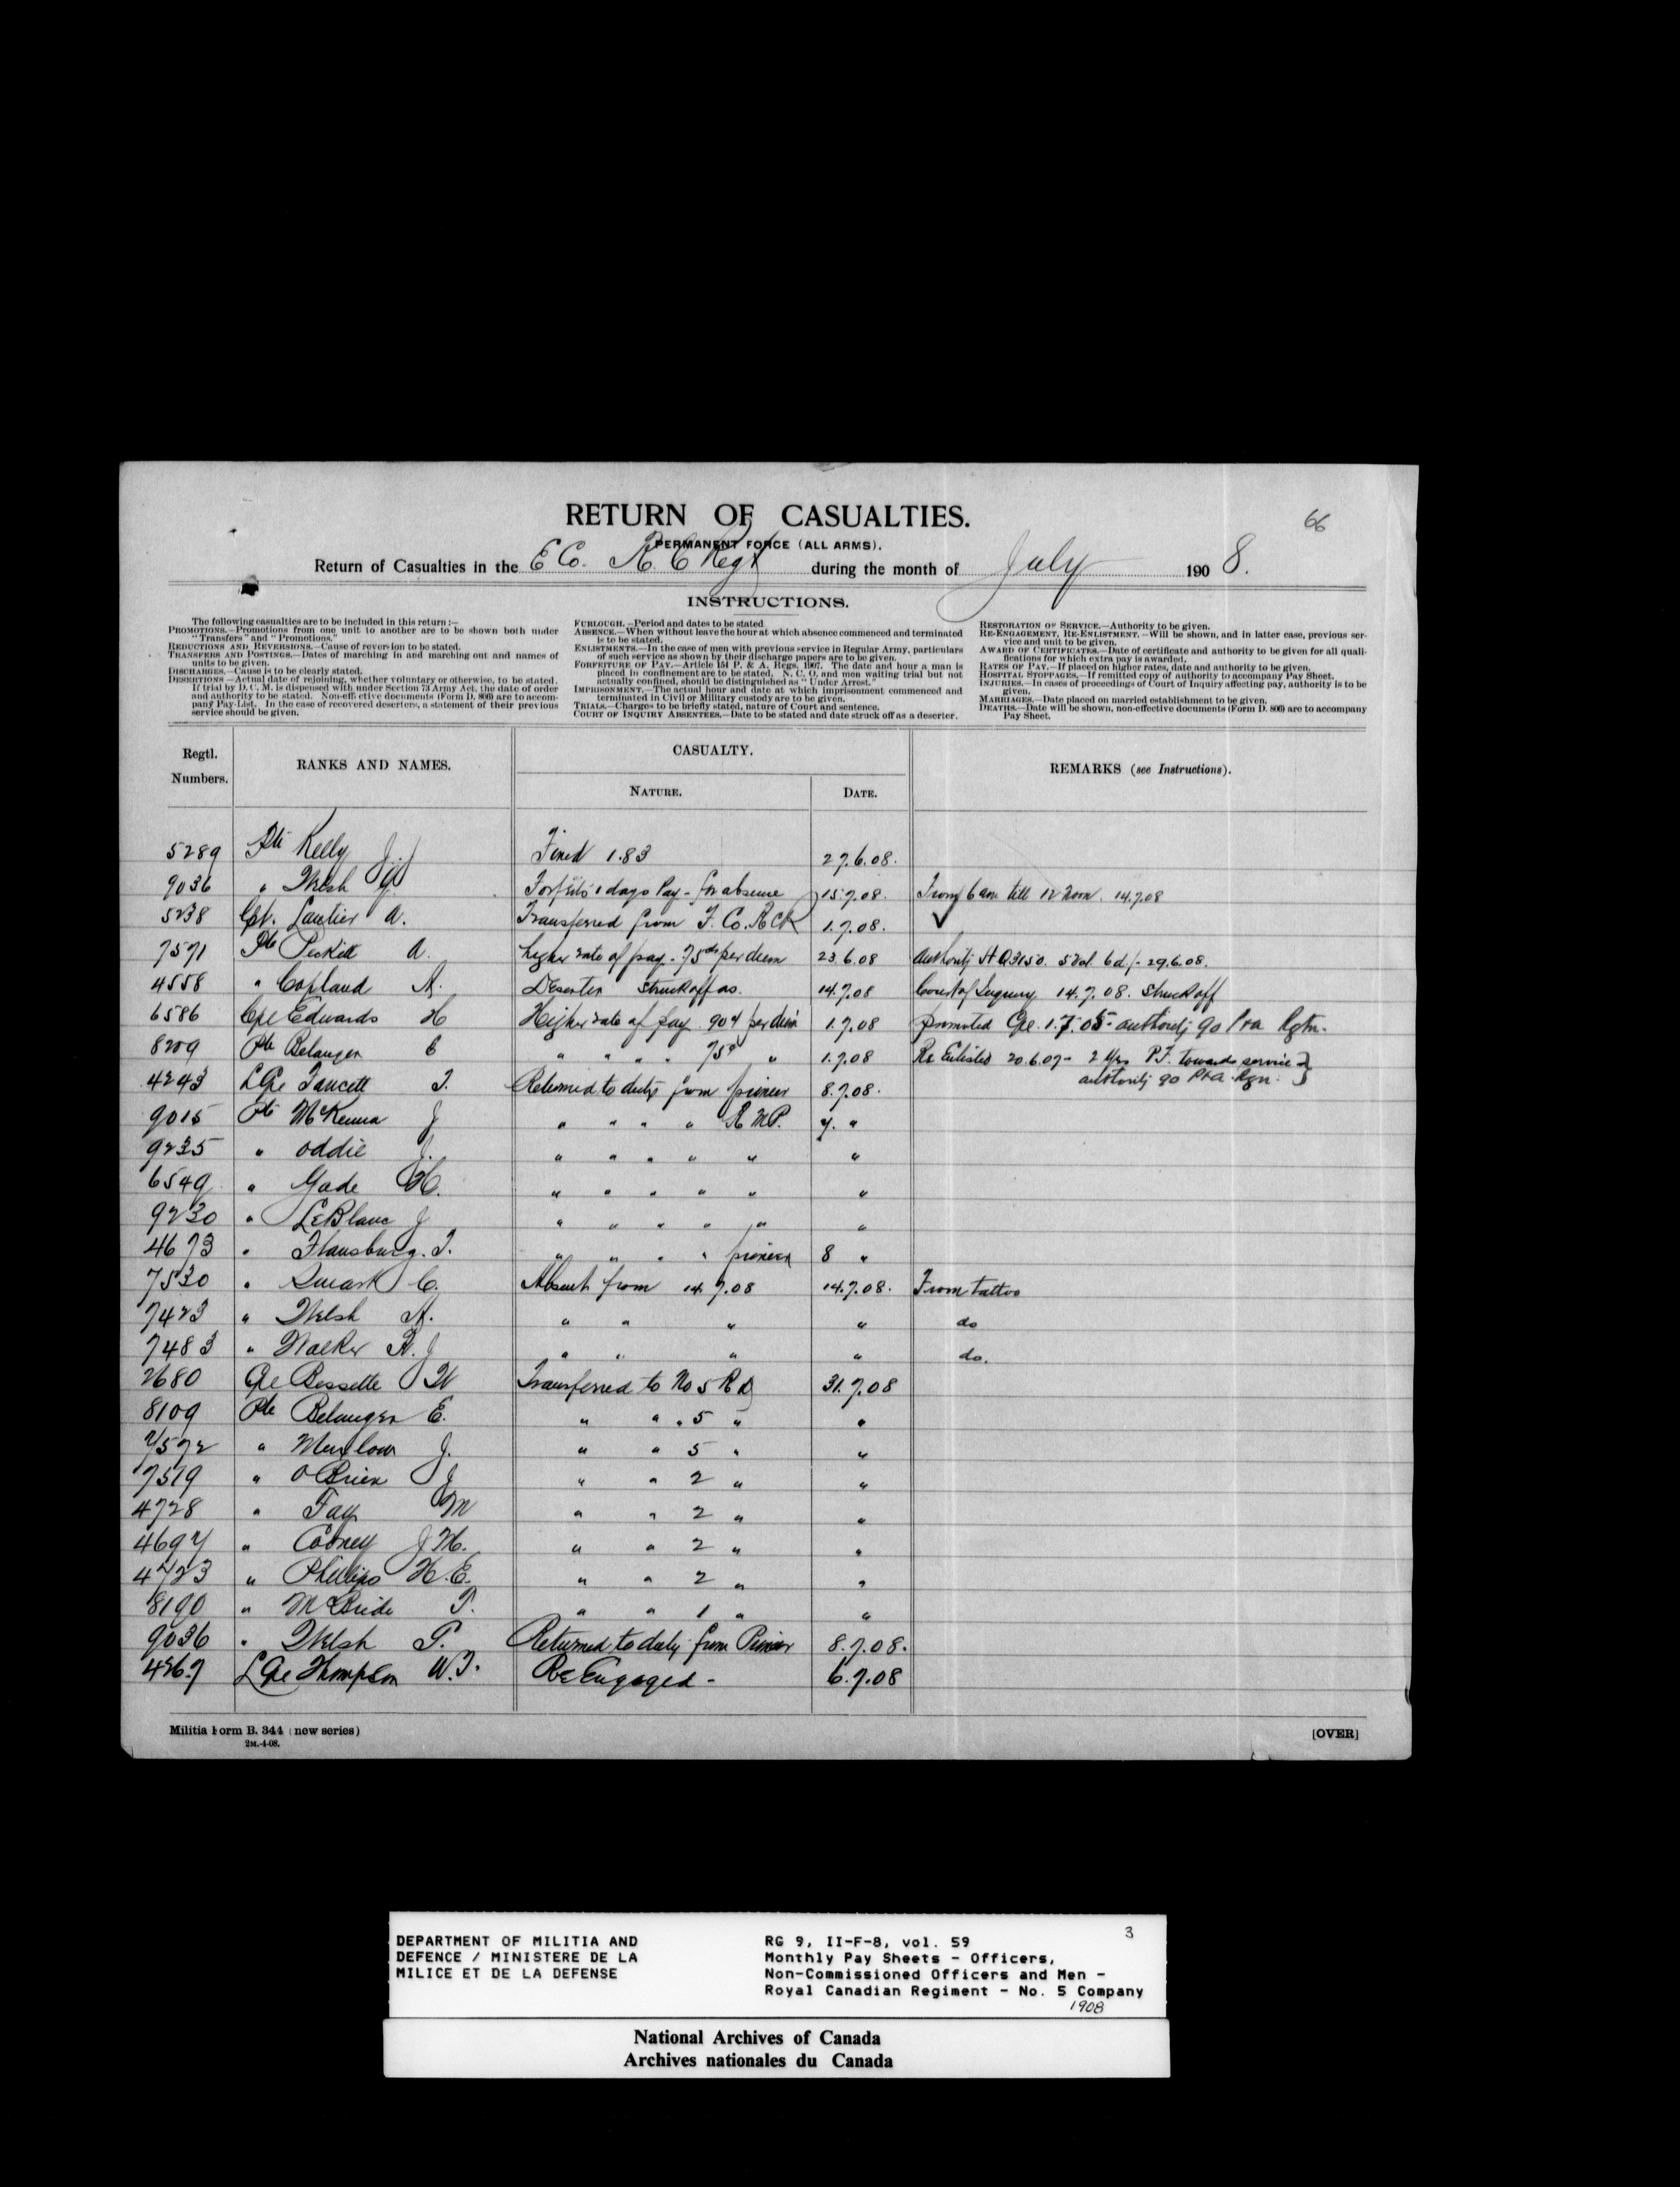 66
RETURN OF CASUALTIES.
PERMANENT FORCE (ALL ARMS).
Return of Casualties in the E Co. R. C Regt during the month of July 1908.
INSTRUCTIONS.
The following casualties are to be included in this return:—
PROMOTIONS.—Promotions from one unit to another are to be shown both under
"Transfers" and "Promotions."
REDUCTIONS AND REVERSIONS.—Cause of reversion to be stated.
TRANSFERS AND POSTINGS.—Dates of marching in and marching out and names of
units to be given.
DISCHARGES.—Cause is to be clearly stated.
DESERTIONS—Actual date of rejoining, whether voluntary or otherwise, to be stated.
If trial by D. C. M. is dispensed with under Section 73 Army Act, the date of order
and authority to be stated. Non-effective documents (Form D. 806) are to accom-
pany Pay-List. In the case of recovered deserters, a statement of their previous
service should be given.
FURLOUGH.—Period and dates to be stated
ABSENCE.—When without leave the hour at which absence commenced and terminated
is to be stated.
ENLISTMENTS.—In the case of men with previous service in Regular Army, particulars
of such service as shown by their discharge papers are to be given.
FORFEITURE OF PAY.—Article 154 P. & A. Regs. 1907. The date and hour a man is
placed in confinement are to be stated. N. C. O. and men waiting trial but not
actually confined, should be distinguished as "Under Arrest."
IMPRISONMENT.—The actual hour and date at which imprisonment commenced and
terminated in Civil or Military custody are to be given.
TRIALS.—Charges to be briefly stated, nature of Court and sentence.
COURT OF INQUIRY ABSENTEES.—Date to be stated and date struck off as a deserter.
RESTORATION OF SERVICE.—Authority to be given.
RE-ENGAGEMENT, RE-ENLISTMENT.—Will be shown, and in latter case, previous ser-
vice and unit to be given.
AWARD OF CERTIFICATES.—Date of certificate and authority to be given for all quali-
fications for which extra pay is awarded.
RATES OF PAY.—If placed on higher rates, date and authority to be given.
HOSPITAL STOPPAGES.—If remitted copy of authority to accompany Pay Sheet.
INJURIES.—In cases of proceedings of Court of Inquiry affecting pay, authority is to be
given.
MARRIAGES.—Date placed on married establishment to be given.
DEATHS.—Date will be shown, non-effective documents (Form D. 806) are to accompany
Pay Sheet.
Regtl. Numbers. RANKS AND NAMES. CASUALTY. REMARKS (see Instructions).
NATURE. DATE.
5289 Pte Kelly J. Fined 1.83 27.6.08.
9036 " Welsh Forfeits 1 days Pay - for absence 15.7.08. From 6 am till 12 Noon. 14.7.08
5238 Cpl. Lautier A. Transferred from F. Co. RCR 1.7.08. ✓
7571 Pte A. higher rate of pay - 75 cts per diem 23.6.08 authority HQ 3150. 6 d/- 29.6.08.
4558 " Copland A. Deserter Struck off as. 14.7.08 Court of Inquiry 14.7.08. Struck off
6586 Cpl Edwards H Higher rate of pay 90¢ per diem 1.7.08 promoted Cpl. 1.7.05 - authority 90 P&A Rgtn.
8209 Pte Belanger E " " " " 75¢ " 1.7.08 Re Enlisted 20.6.07 - 2 Yrs P.F. towards service }
authority 90 P&A Rgn. }
4243 L Cpl Faucett T. Returned to duty from pioneer 8.7.08.
9015 Pte McKenna J " " " " R M P. 7. "
9235 " Oddie J. " " " " " "
6549 " Gade H. " " " " " "
9230 " LeBlanc J " " " " " "
4673 " Flansburg. T. " " " " pioneer 8 "
7530 " C. Absent from 14.7.08 14.7.08. From tattoo
7423 " Welsh A. " " " " do
7483 " Walker A. J " " " " do.
2680 Cpl Bessette W Transferred to No 5 R D 31.7.08
8109 Pte Belanger E. " " " 5 " "
7572 " J. " " 5 " "
7519 " O Brien J " " 2 " "
4728 " Fay M " " 2 " "
4697 " Cooney J H. " " 2 " "
4723 " Phillips H. E. " " 2 " "
8190 " McBride T. " " 1 " "
9036 " Welsh P. Returned to duty from Pioneer 8.7.08.
4267 L Cpl Thompson W. T. Re Engaged - 6.7.08
Militia Form B. 344 (new series)
2M.-4-08.
[OVER]
3
DEPARTMENT OF MILITIA AND
DEFENCE / MINISTERE DE LA
MILICE ET DE LA DEFENSE
RG 9, II-F-8, vol. 59
Monthly Pay Sheets - Officers,
Non-Commissioned Officers and Men -
Royal Canadian Regiment - No. 5 Company
1908
National Archives of Canada
Archives nationales du Canada